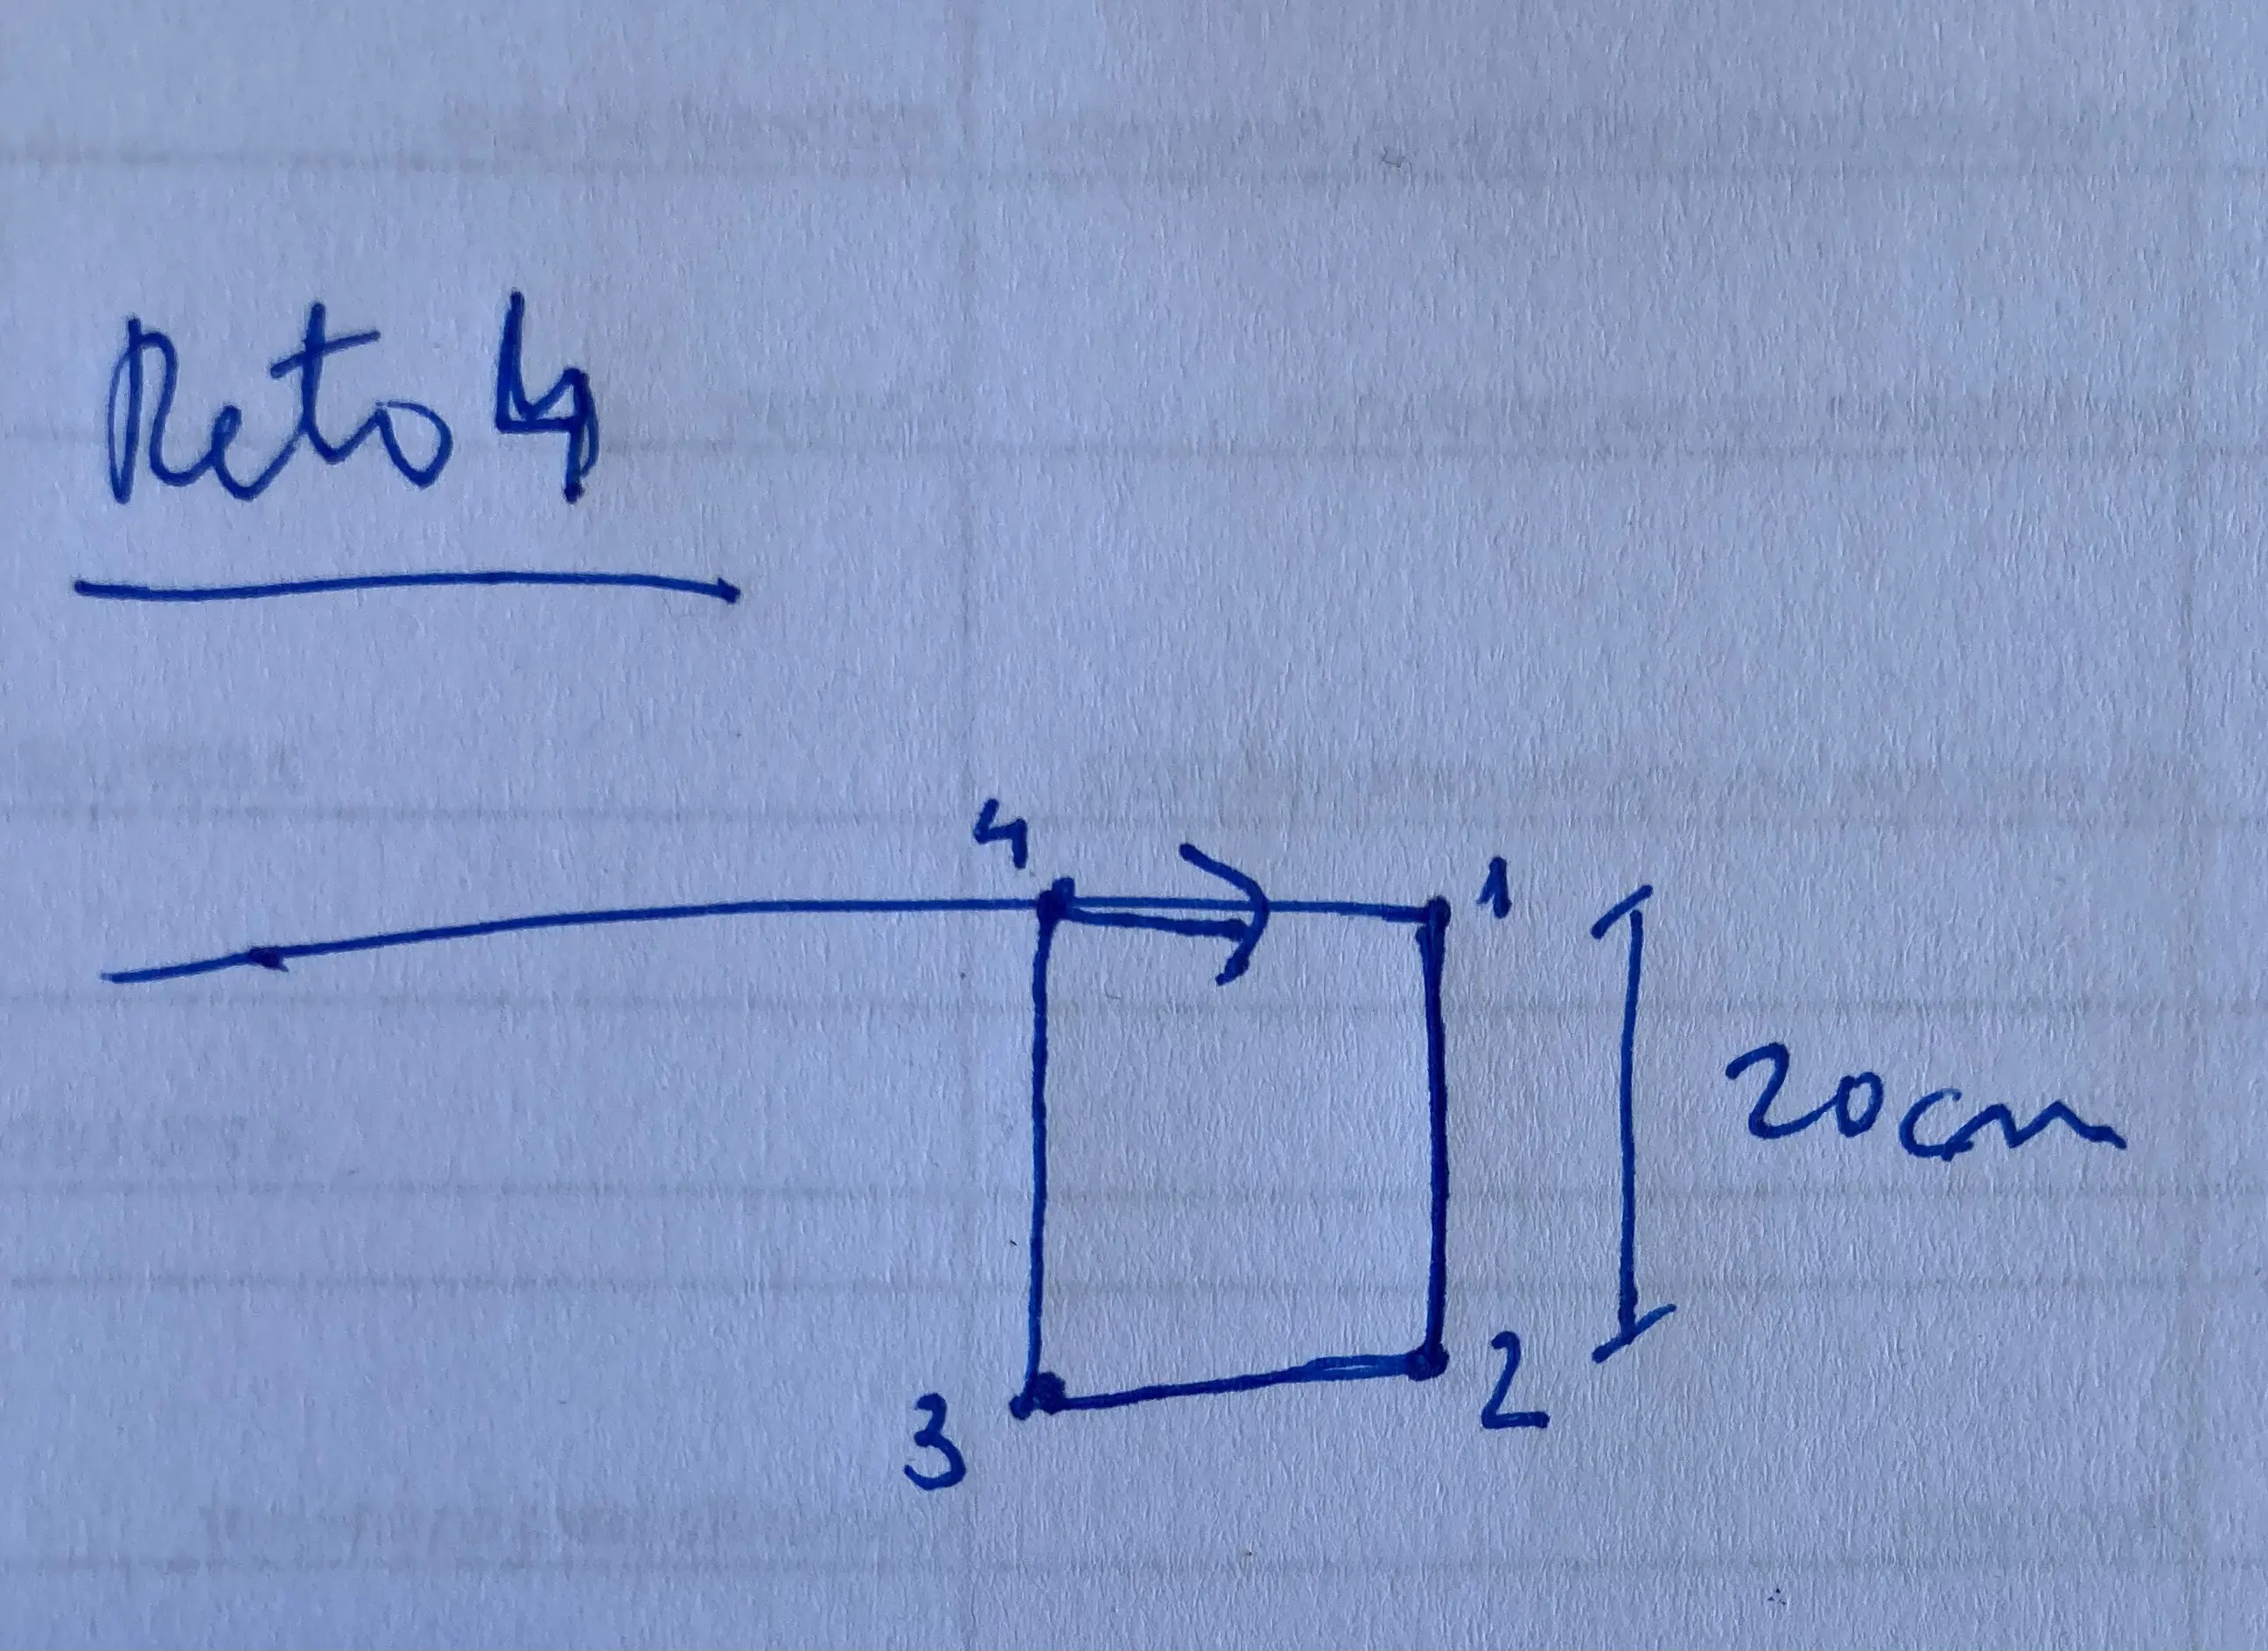 Reto 4
4
1
20cm
2
3